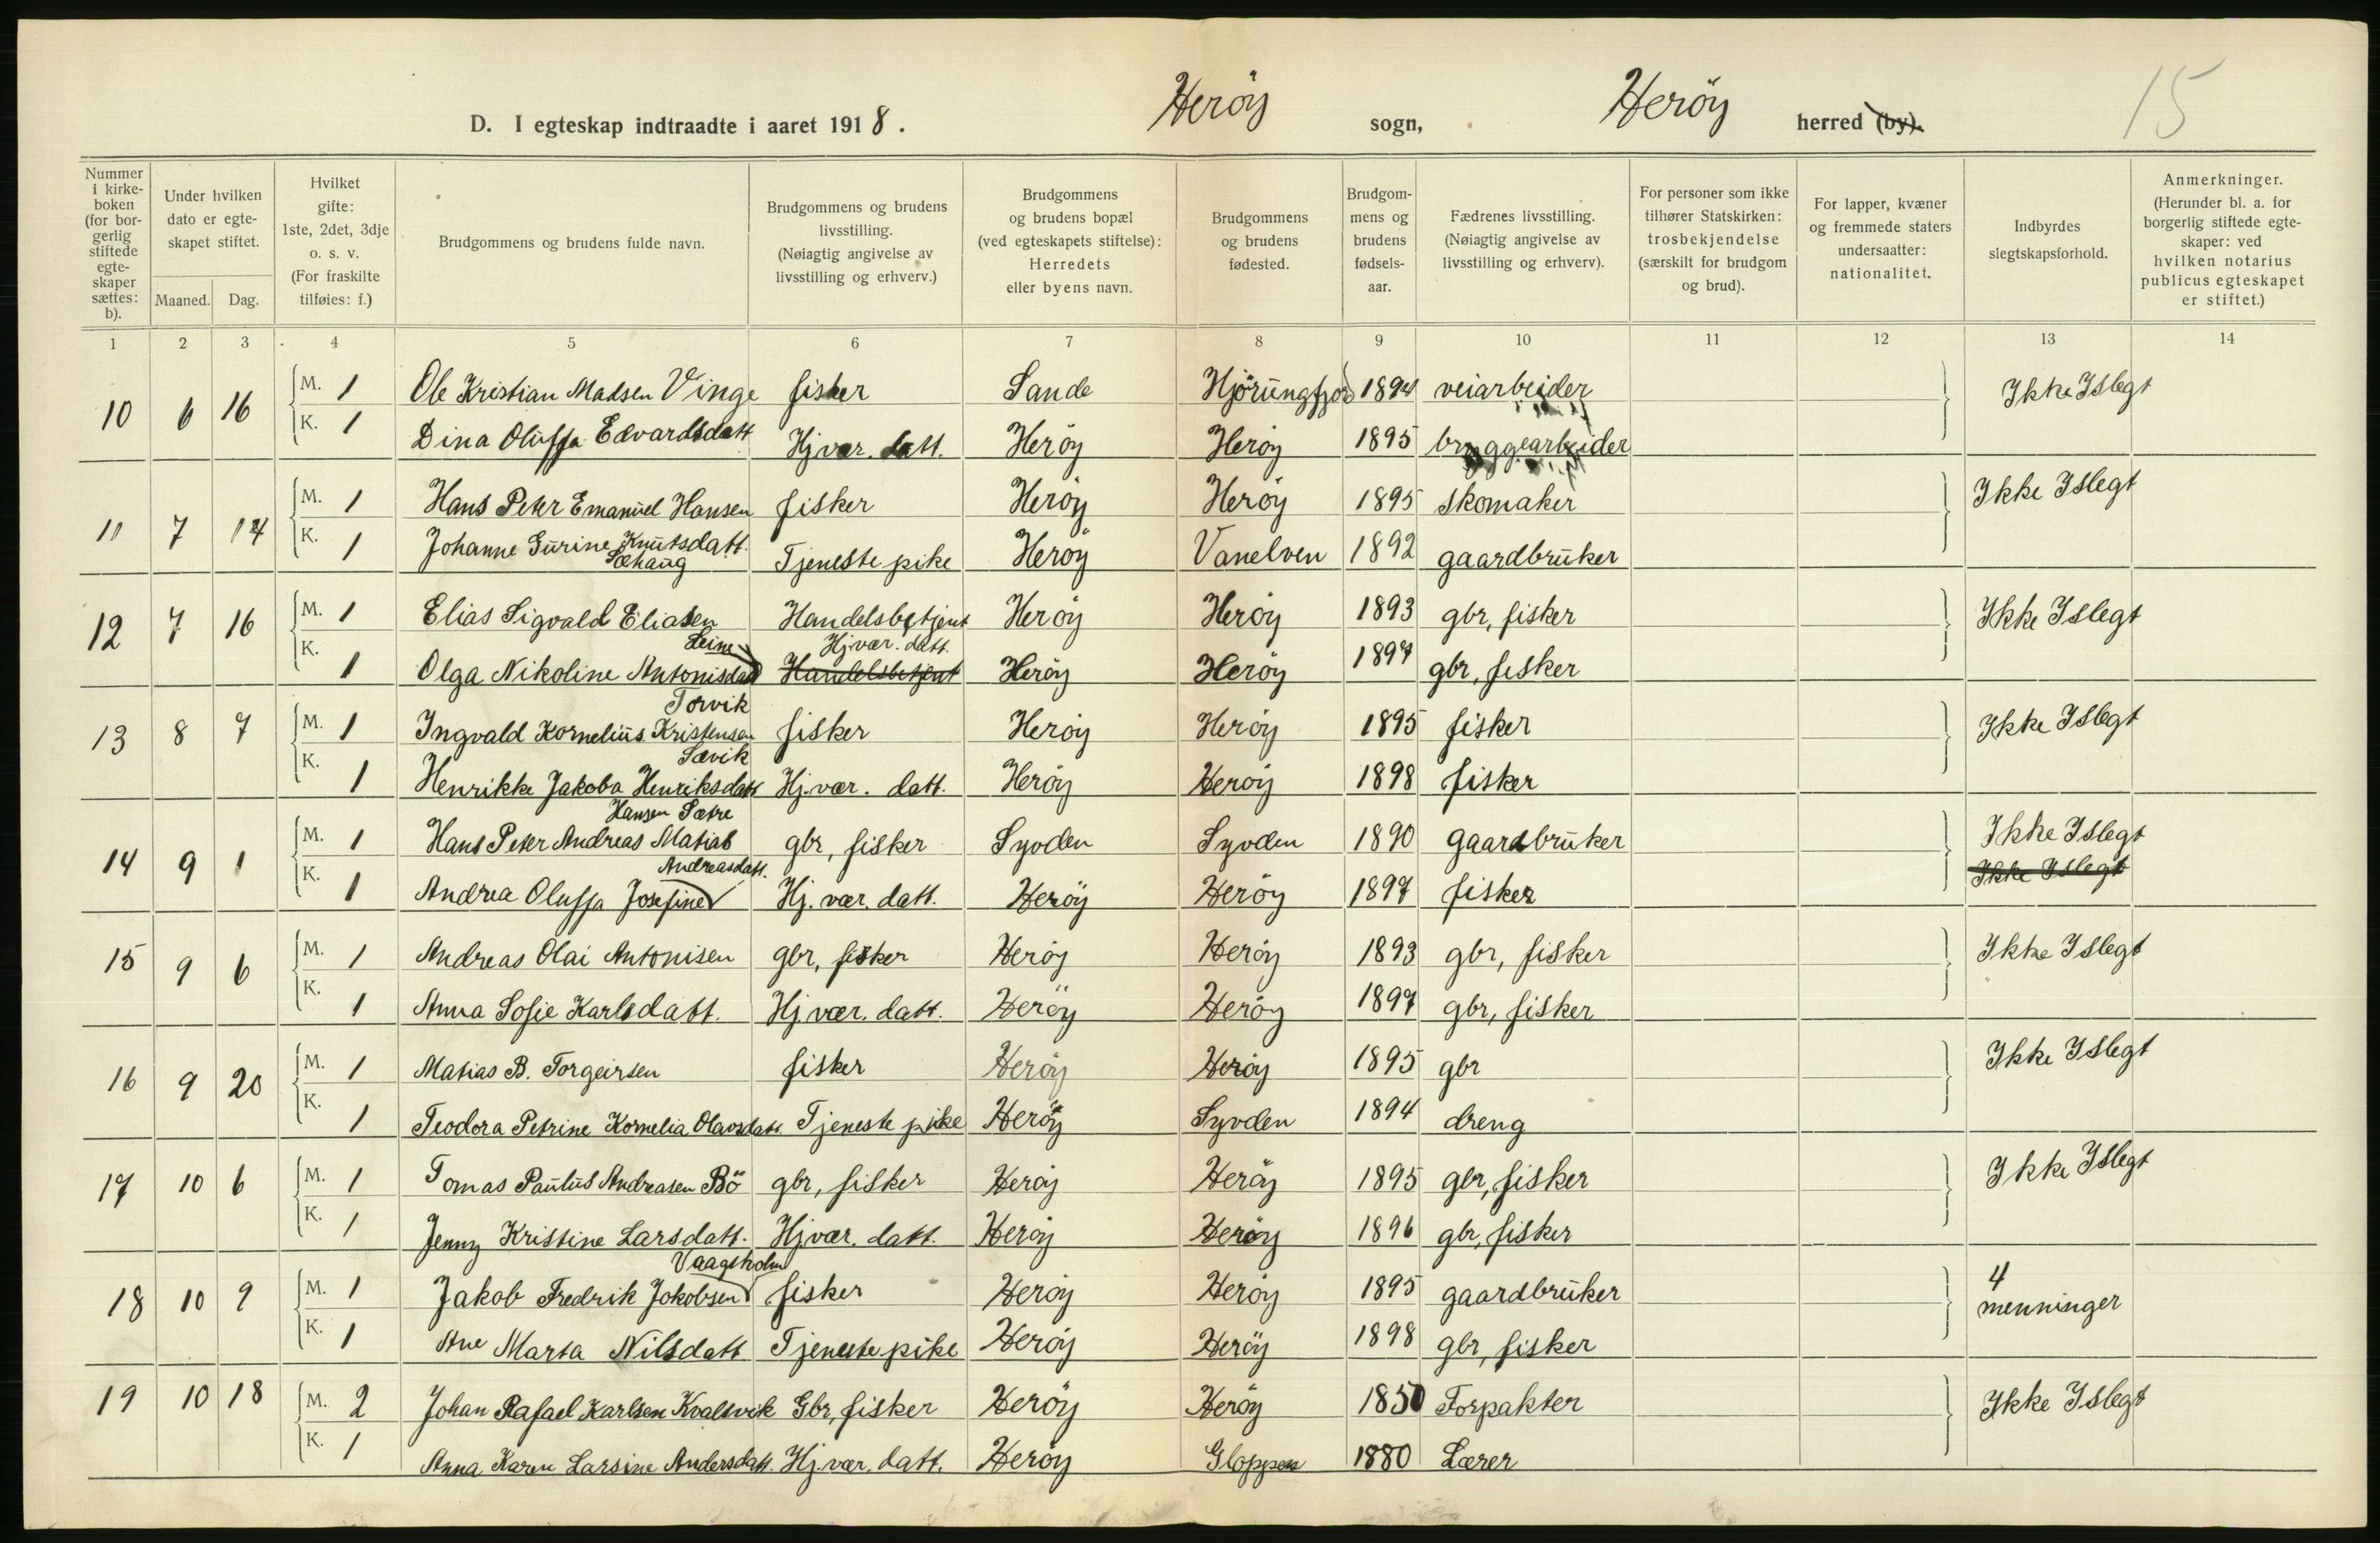 D. I egteskap indtraadte i aaret 1918. Herøy sogn, Herøy herred (by). 15
Nummer i kirkeboken (for borgerlig stiftede egteskaper sættes: b).
Under hvilken dato er egteskapet stiftet.
Maaned. Dag.
Hvilket gifte: 1ste, 2det, 3dje o. s. v. (For fraskilte tilføies: f.)
Brudgommens og brudens fulde navn.
Brudgommens og brudens livsstilling. (Nøiagtig angivelse av livsstilling og erhverv.)
Brudgommens og brudens bopæl (ved egteskapets stiftelse): Herredets eller byens navn.
Brudgommens og brudens fødested.
Brudgommens og brudens fødselsaar.
Fædrenes livsstilling. (Nøiagtig angivelse av livsstilling og erhverv).
For personer som ikke tilhører Statskirken: trosbekjendelse (særskilt for brudgom og brud).
For lapper, kvæner og fremmede staters undersaatter: nationalitet.
Indbyrdes slegtskapsforhold.
Anmerkninger. (Herunder bl. a. for borgerlig stiftede egteskaper: ved hvilken notarius publicus egteskapet er stiftet.)
1 2 3 4 5 6 7 8 9 10 11 12 13 14
10 6 16 M. 1 Ole Kristian Madsen Vinge fisker Sande Hjörungfjord 1894 veiarbeider Ikke Islegt
K. 1 Dina Oluffa Edvardsdatt Hj. vær. datt. Heröy Heröy 1895 bryggearbeider
11 7 14 M. 1 Hans Peter Emanuel Hansen fisker Heröy Heröy 1895 skomaker Ikke Islegt
K. 1 Johanne Gurine Knutsdatt. Sæhaug Tjenestepike Heröy Vanelven 1892 gaardbruker
12 7 16 M. 1 Elias Sigvald Eliasen Handelsbetjent Heröy Heröy 1893 gbr, fisker Ikke Islegt
Leine Hj. vær. datt.
K. 1 Olga Nikoline Antonisdatt Handelsbetjent Heröy Heröy 1897 gbr, fisker
Torvik
13 8 7 M. 1 Ingvald Kornelius Kristensen fisker Heröy Heröy 1895 fisker Ikke Islegt
Sævik
K. 1 Henrikke Jakoba Henriksdatt Hj. vær. datt. Heröy Heröy 1898 fisker
Hansen Sætre
14 9 1 M. 1 Hans Peter Andreas Matias gbr, fisker Syvden Syvden 1890 gaardbruker Ikke Islegt
Andreasdatt. Ikke Islegt
K. 1 Andrea Oluffa Josefine Hj. vær. datt. Heröy Heröy 1897 fisker
15 9 6 M. 1 Andreas Olai Antonisen gbr, fisker Heröy Heröy 1893 gbr, fisker Ikke Islegt
K. 1 Anna Sofie Karlsdatt. Hj. vær. datt. Heröy Heröy 1897 gbr, fisker
16 9 20 M. 1 Matias B. Torgeirsen fisker Heröy Heröy 1895 gbr Ikke Islegt
K. 1 Teodora Petrine Kornelia Olavsdatt. Tjenestepike Heröy Syvden 1894 dreng
17 10 6 M. 1 Tomas Paulus Andreasen Bö gbr, fisker Heröy Heröy 1895 gbr, fisker Ikke Islegt
K. 1 Jenny Kristine Larsdatt. Hj. vær. datt. Heröy Heröy 1896 gbr, fisker
Vaagsholm
18 10 9 M. 1 Jakob Fredrik Jokobsen fisker Heröy Heröy 1895 gaardbruker 4 menninger
K. 1 Ane Marta Nilsdatt Tjenestepike Heröy Heröy 1898 gbr, fisker
19 10 18 M. 2 Johan Rafael Karlsen Kvalsvik Gbr, fisker Heröy Heröy 1850 Forpakter Ikke Islegt
K. 1 Anna Karen Larsine Andersdatt. Hj. vær. datt. Heröy Gloppen 1880 Lærer